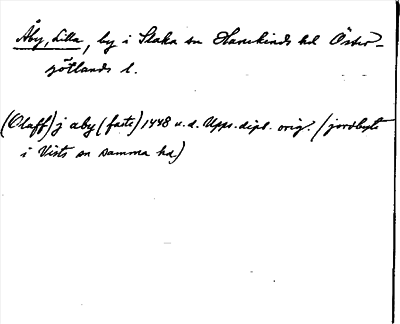 Åby, Lilla, by i Slaka sn Hanekinds hd Öster-
götlands l.
(Olaff) j aby (faste) 1448 u. d. Upps. dipl. orig. (jordbyte
i Vists sn samma hd)